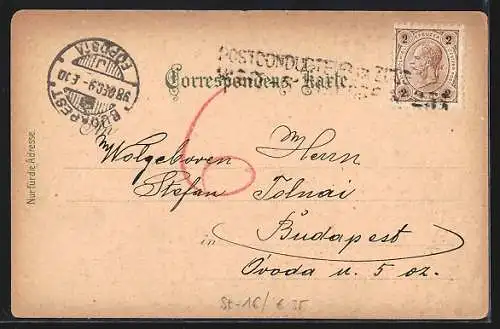 2 2
POSTCONDUCTEUR im ZUGE
FŐPOSTA
98 DEC 9 E 10
BUDAPEST
Correspondenz-Karte
An
Wolgeboren Herrn
Stefan Tolnai
in Budapest
Óvoda u. 5 oz.
6
Nur für die Adresse.
St-16/ € 35